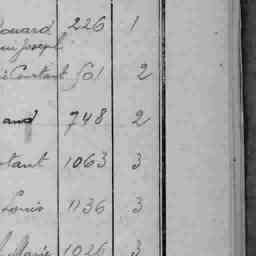 Edouard 226 1
Joseph
Constant 501 2
and 748 2
stant 1063 3
Louis 1136 3
Marie 1026 3